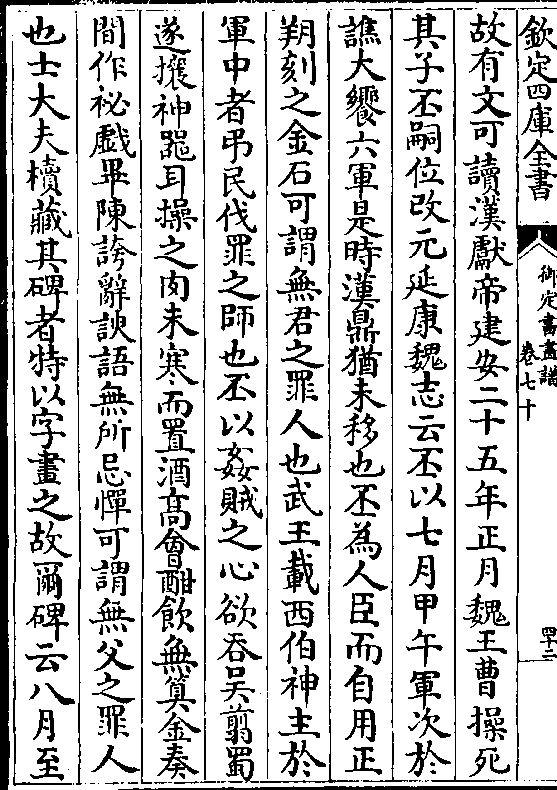 欽定四庫全書
御定書畫譜
卷七十
四十二
故有文可讀漢獻帝建安二十五年正月魏王曹操死
其子丕嗣位改元延康魏志云丕以七月甲午軍次於
譙大饗六軍是時漢鼎猶未移也丕為人臣而自用正
朔刻之金石可謂無君之罪人也武王載西伯神主於
軍中者弔民伐罪之師也丕以姦賊之心欲吞吳翦蜀
遂攘神器耳操之肉未寒而置酒高會酣飲無筭金奏
間作祕戲畢陳誇辭諛語無所忌憚可謂無父之罪人
也士大夫櫝藏其碑者特以字畫之故爾碑云八月至